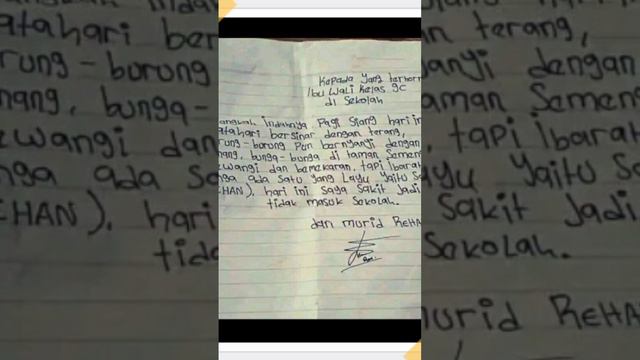 Kepada yang terhorm
Ibu Wali Kelas 9c
di Sekolah
angkah indahnya Pagi Siang hari in
atahari bersinar dengan terang,
rung-borong Pun bernyanyi dengan
nang, bunga-bunga di taman Semen
ewangi dan bemekaran, tapi Ibarat
nga ada satu yang Layu yaitu Sa
EHAN), hari ini saya sakit Jadi
tidak masuk Sekolah.
dan murid REHA